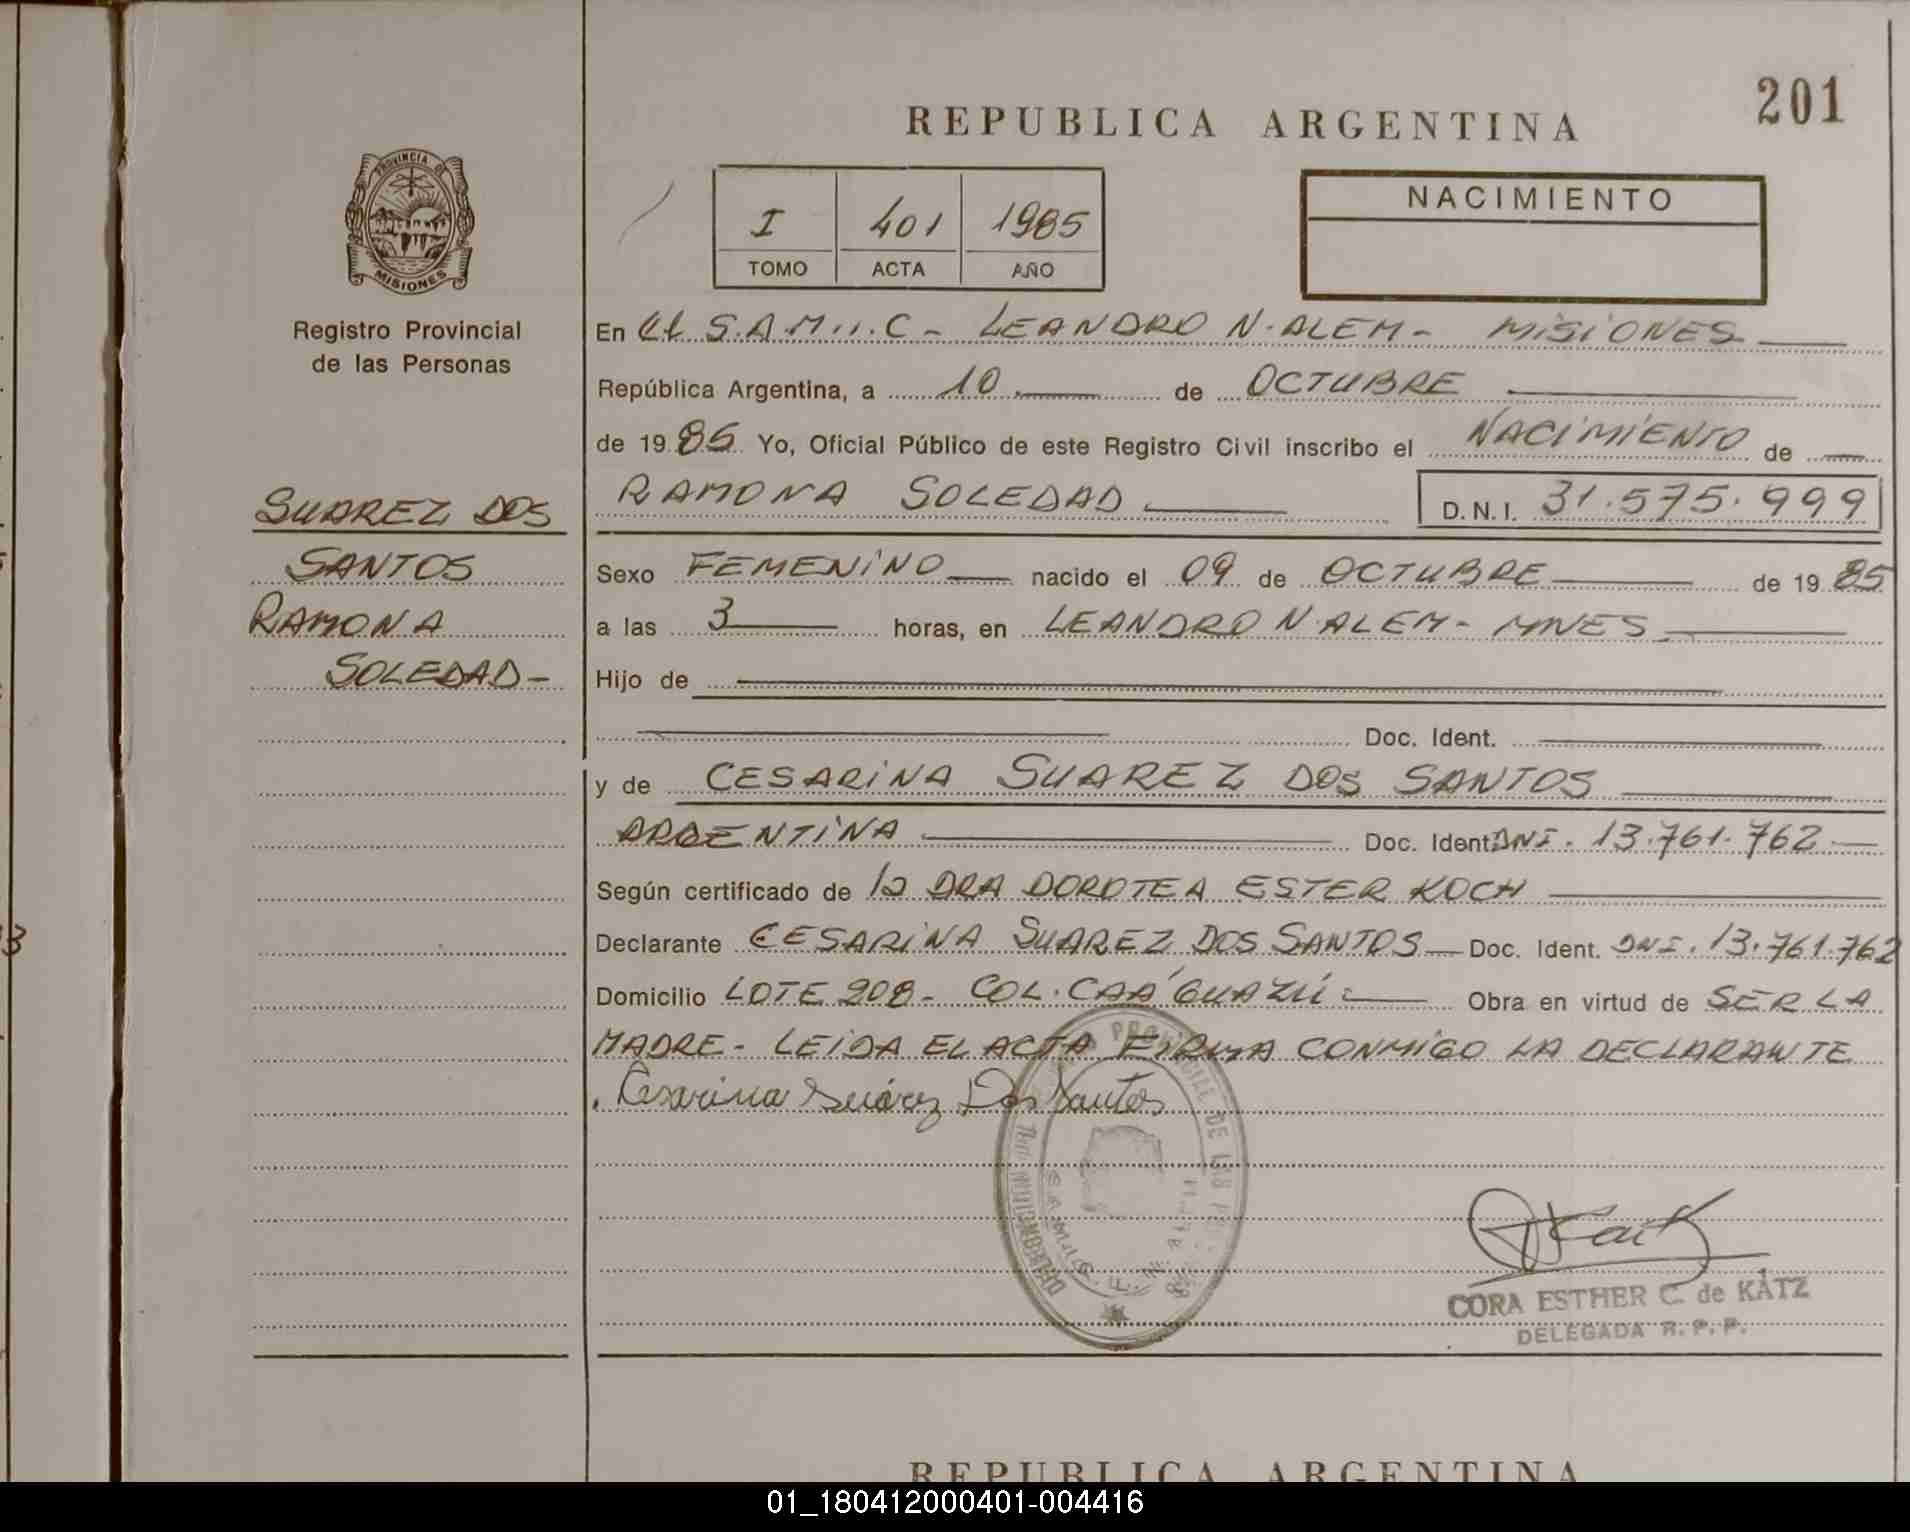 201
REPUBLICA ARGENTINA
PROVINCIA DE
MISIONES
Registro Provincial
de las Personas
I 401 1985
TOMO ACTA AÑO
NACIMIENTO
En el S.A.M...C - LEANDRO N. ALEM - MISIONES
República Argentina, a 10 de OCTUBRE
de 1985 Yo, Oficial Público de este Registro Civil inscribo el NACIMIENTO de
RAMONA SOLEDAD D.N.I. 31.575.999
SUAREZ DOS
SANTOS
RAMONA
SOLEDAD-
Sexo FEMENINO nacido el 09 de OCTUBRE de 1985
a las 3 horas, en LEANDRO N ALEM - MNES
Hijo de
Doc. Ident.
y de CESARINA SUAREZ DOS SANTOS
ARGENTINA Doc. Ident. DNI. 13.761.762
Según certificado de la DRA DOROTEA ESTER KOCH
Declarante CESARINA SUAREZ DOS SANTOS Doc. Ident. DNI. 13.761.762
Domicilio LOTE 208 - COL. CAÁ GUAZÚ Obra en virtud de SER LA
MADRE - LEIDA EL ACTA FIRMA CONMIGO LA DECLARANTE
Cesarina Suárez Dos Santos
CORA ESTHER C. de KATZ
DELEGADA R. P. P.
REPUBLICA ARGENTINA
01_180412000401-004416